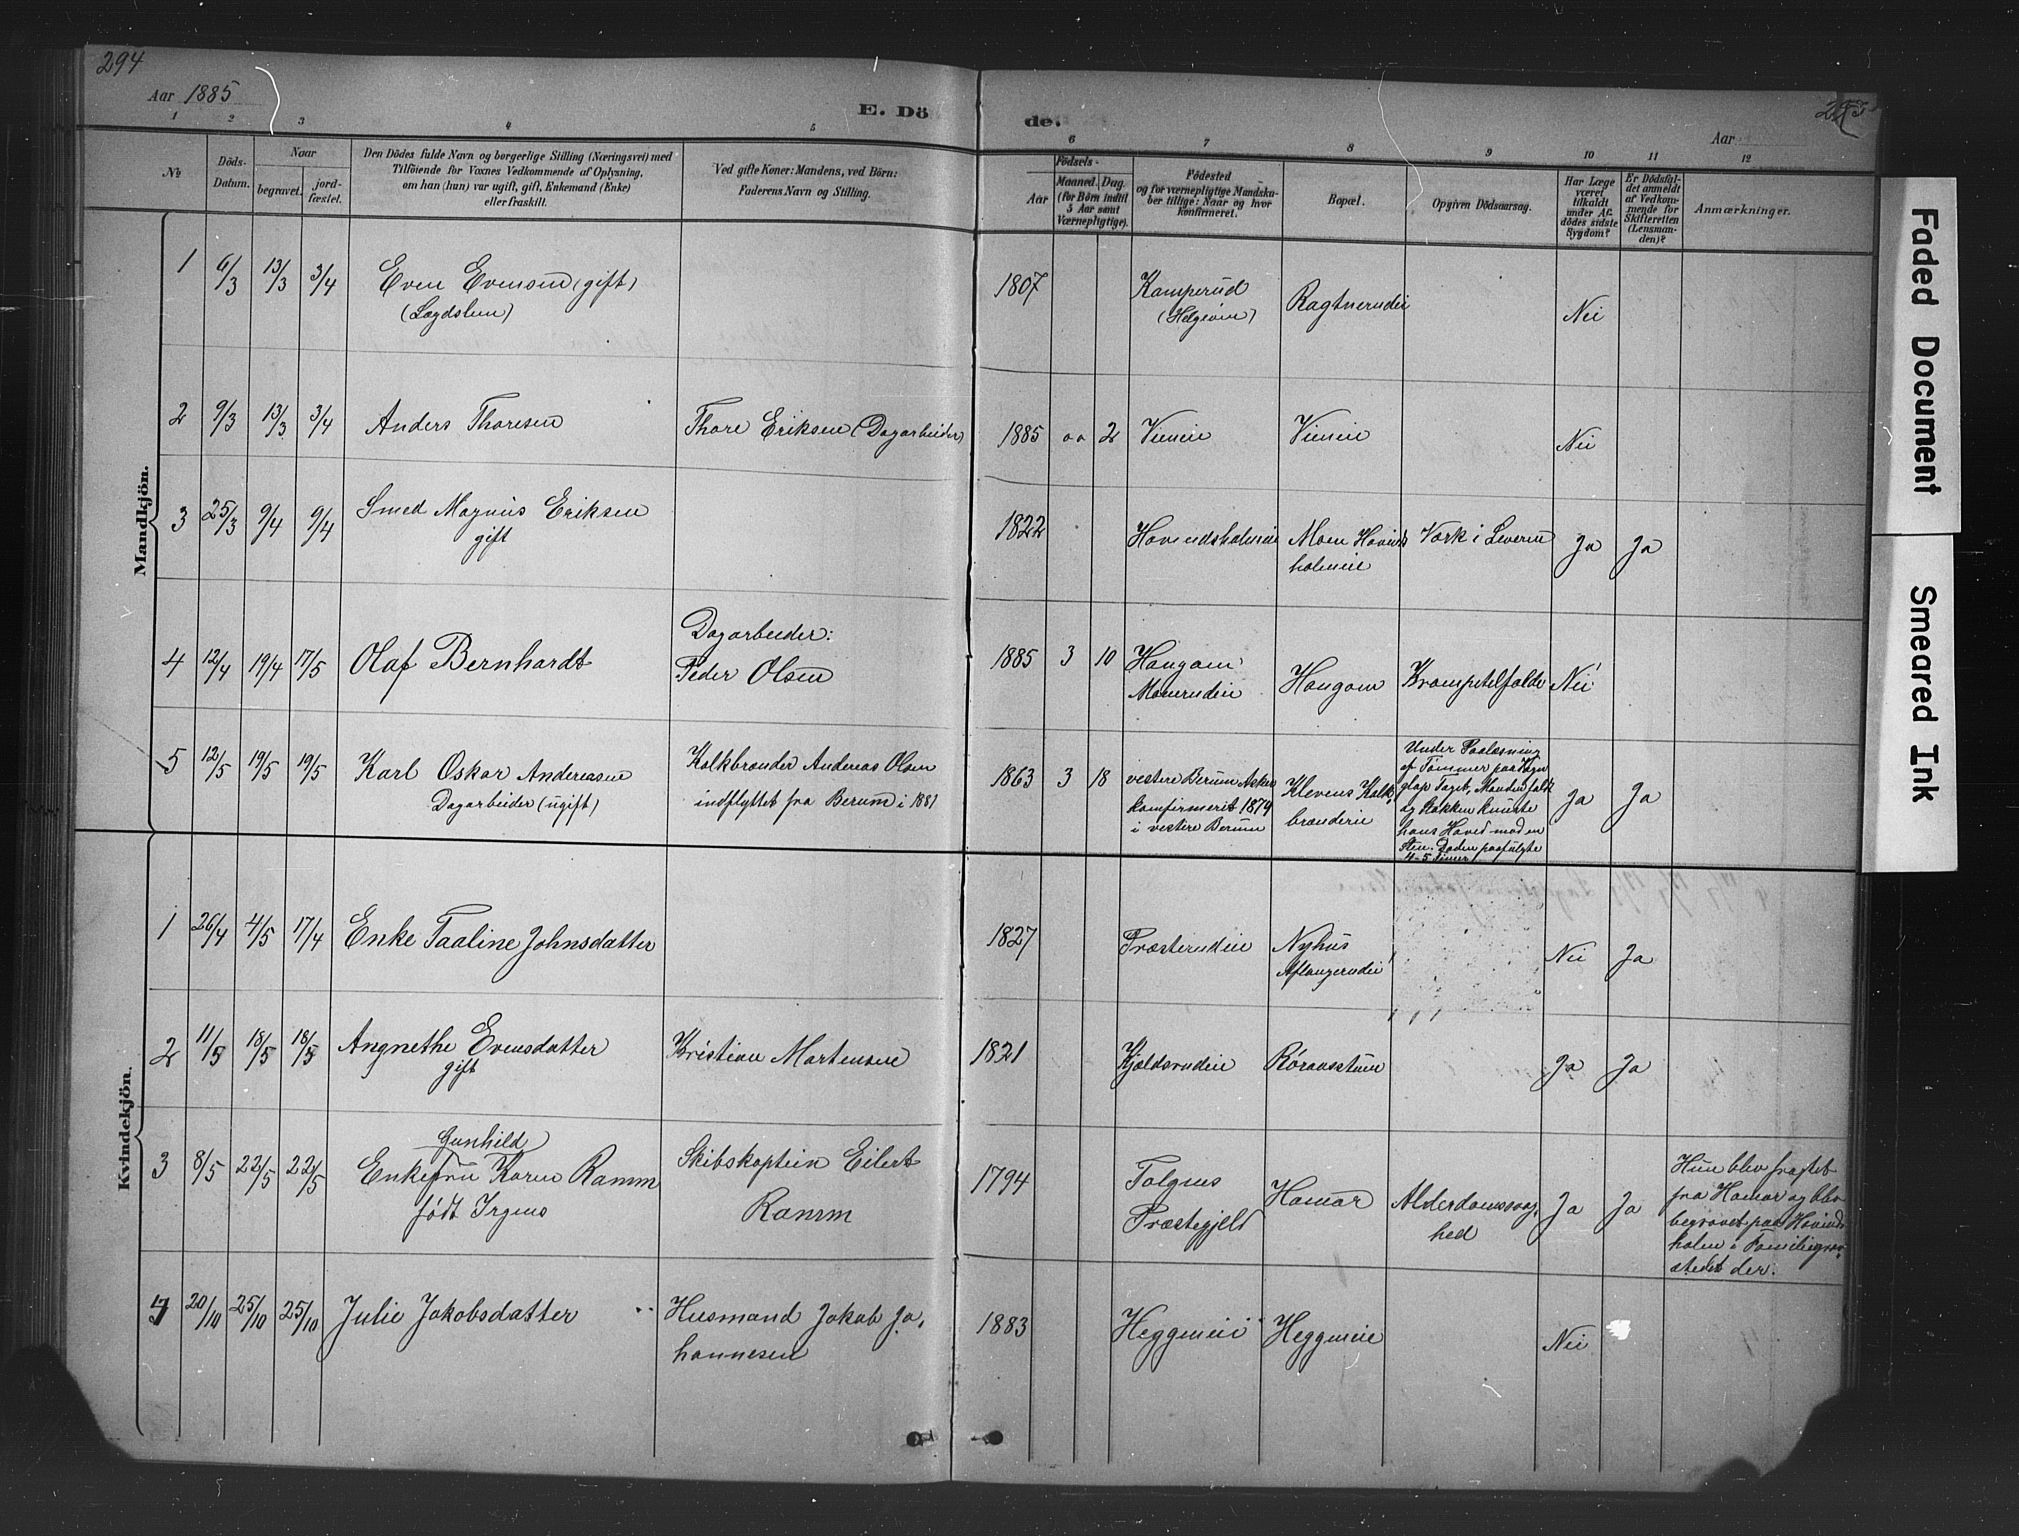 294
Aar 1885
E. Dö
de.
Aar
1 2 3 4 5 6 7 8 9 10 11 12
№
Döds-
Datum.
Naar
begravet.
jord-
fæstet.
Den Dödes fulde Navn og borgerlige Stilling (Næringsvei) med
Tilföiende for Voxnes Vedkommende af Oplysning,
om han (hun) var ugift, gift, Enkemand (Enke)
eller fraskilt.
Ved gifte Koner: Mandens, ved Börn:
Faderens Navn og Stilling.
Födsels-
Aar
Maaned. Dag.
(for Börn indtil
5 Aar samt
Værnepligtige).
Födested
og for værnepligtige Mandska-
ber tillige: Naar og hvor
konfirmeret.
Bopæl.
Opgiven Dödsaarsag.
Har Læge
været
tilkaldt
under Af-
dödes sidste
Sygdom?
Er Dödsfal-
det anmeldt
af Vedkom-
mende for
Skifteretten
(Lensman-
den)?
Anmærkninger.
Mandkjön.
1 6/3 13/3 3/4 Even Evensen (gift)
(Lægdslem)
1807 Kamperud
(Helgøien)
Ragtnerudei
Nei
2 9/3 13/3 3/4 Anders Thoresen
Thore Eriksen (Dagarbeider)
1885 00 2 Vieneie
Vieneie
Nei
3 25/3 9/4 9/4 Smed Magnus Eriksen
gift
1822 Hovindsholmeie
Moen Hovinds
holmeie
Værk i Leveren
Ja Ja
4 12/4 19/4 17/5 Olaf Bernhardt
Dagarbeider:
Peder Olsen
1885 3 10 Haugam
Maurudeie
Haugam
Krampetilfælde
Nei
5 12/5 19/5 19/5 Karl Oskar Andreasen
Dagarbeider (ugift)
Kalkbrænder Andreas Olsen
indflyttet fra Berum i 1881
1863 3 18 vestere Berum Asker
konfirmerit 1879
i vestere Berum
Klevens Kalk
brænderie
Under Paalæsning
af Tømmer paa Vogn
glap Taget, Manden faldt
og Stokken knuste
hans Hoved mod en
Sten. Døden paafulgte
4-5 Timer
Ja Ja
Kvindekjön.
1 26/4 4/5 17/4 Enke Paaline Johnsdatter
1827 Præsterudeie
Nyhus
Aflangerudei
Nei Ja
2 11/5 18/5 18/5 Angnethe Evensdatter
gift
Kristian Martensen
1821 Kjøldsrudeie
Røraasstuen
Ja Ja
Gunhild
3 8/5 22/5 22/5 Enkefru Karen Ramm
født Irgens
Skibskaptein Eilert
Ramm
1794 Tolgens
Præstegjeld
Hamar
Alderdomssvag-
hed
Ja Ja
Hun blev fragtet
fra Hamar og blev
begravet paa Hovinds
holm i Familiegrav-
stedet der.
4 20/10 25/10 25/10 Julie Jakobsdatter
Husmand Jakob Jo-
hannesen
1883 Heggeneie
Heggeneie
Nei
Faded Document
Smeared Ink